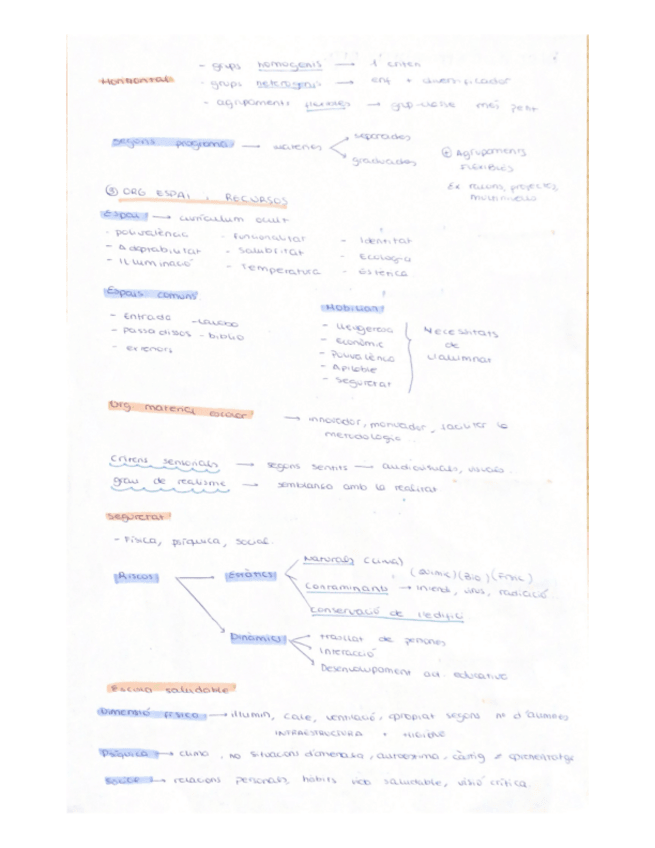 - grups homogenis → 1 criteri
Horitzontal - grups heterogenis → enf + diversificador
- agrupaments flexibles → grup-classe més petit
Segons programa → matèries separades
graduades
⊕ Agrupaments flexibles
Ex racons, projectes, multinivells
④ ORG ESPAI i RECURSOS
Espai → curriculum ocult
- polivalència - Funcionalitat - Identitat
- Adaptabilitat - Salubritat - Ecologia
- Il·luminació - Temperatura - Estètica
Espais comuns
- Entrada - lavabo
- passadissos - biblio
- exteriors
Mobiliari
- lleugeresa
- econòmic
- Polivalència
- Apilable
- seguretat
Necessitats de l'alumnat
Org material escolar → innovador, motivador, facilitar la metodologia
Criteris sensorials → segons sentits → audiovisuals, visuals.
grau de realisme → semblança amb la realitat
Seguretat
- Física, psíquica, social.
Riscos → Estàtics Naturals (clima)
(Químic) (Bio) (Físic)
Contaminants → incendi, virus, radiació
Conservació de l'edifici
Dinàmics trasllat de persones
Interacció
Desenvolupament act. educativa
Escola saludable
Dimensió física → il·lumin, calef, ventilació, apropiat segons nº d'alumnes
INFRAESTRUCTURA + higiene
Psíquica → clima, no situacions d'amenaça, autoestima, càstig ≠ aprenentatge
Social → relacions personals, hàbits vida saludable, visió crítica.